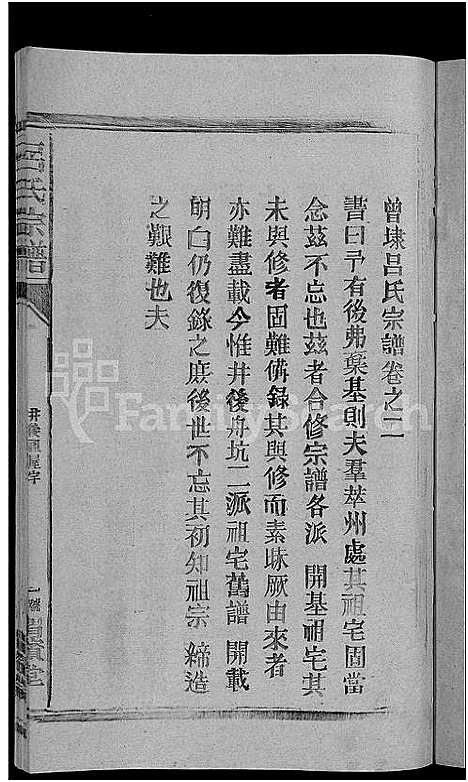 曾埭吕氏宗譜卷之二
書曰予有後弗棄基則夫羣萃州處其祖宅固當
念茲不忘也茲者合修宗譜各派 開基祖宅其
未與修者固難備錄其與修而素昧厥由來者
亦難盡載今惟井後舟坑二派祖宅舊譜 開載
明白仍復錄之庶後世不忘其初知祖宗 締造
之艱難也夫
吕氏宗譜
FamilySearch